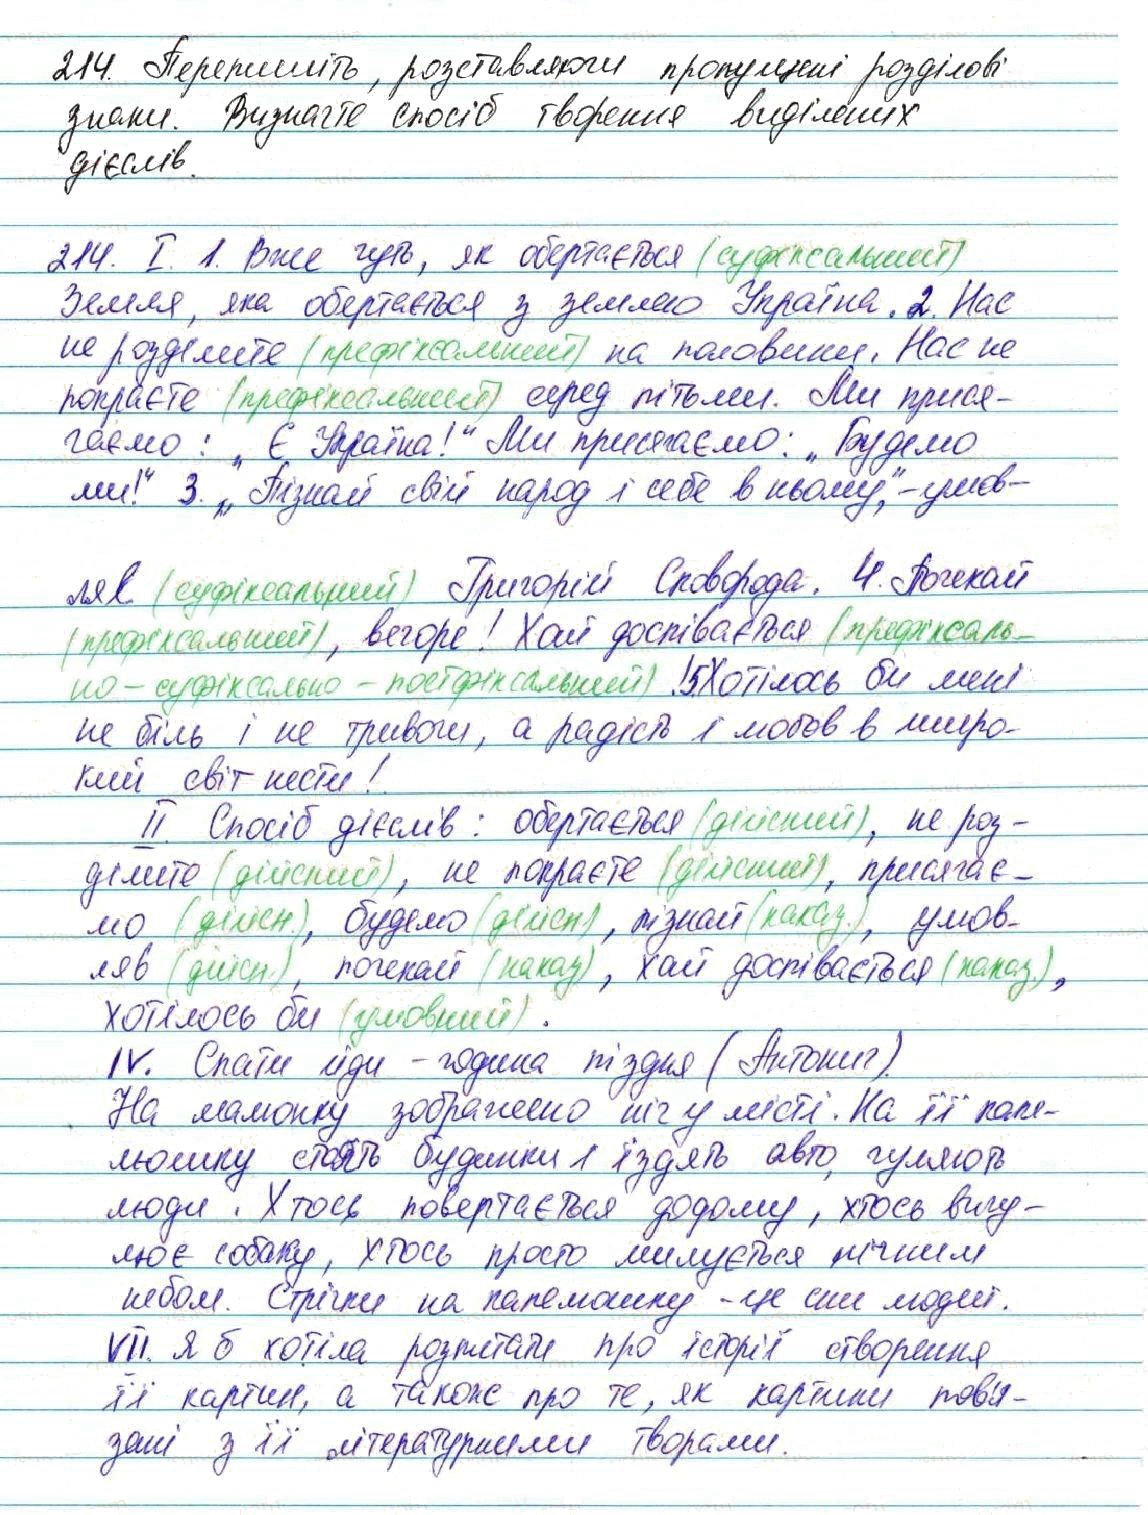 214. Перепишіть, розставляючи пропущені розділові
знаки. Визначте спосіб творення виділених
дієслів.
214. І. 1. Вже чуть, як обертається (суфіксальний)
Земля, яка обертається з землею Україна. 2. Нас
не розділите (префіксальний) на половини. Нас не
покраєте (префіксальний) серед пітьми. Ми прися-
гаємо: „Є Україна!“ Ми присягаємо: „Будемо
ми!“ 3. „Пізнай свій народ і себе в ньому,“ - умов-
ляв (суфіксальний) Григорій Сковорода. 4. Почекай
(префіксальний), вечоре! Хай доспівається (префіксаль-
но-суфіксально-постфіксальний)! 5 Хотілось би мені
не біль і не тривоги, а радість і любов в широ-
кий світ нести!
ІІ Спосіб дієслів: обертається (дійсний), не роз-
ділите (дійсний), не покраєте (дійсний), присягає-
мо (дійсн.), будемо (дійсн), пізнай (наказ.), умов-
ляв (дійсн.), почекай (наказ), хай доспівається (наказ.),
хотілось би (умовний).
IV. Спати йди - година пізня (Антонич).
На малюнку зображено ніч у місті. На її капе-
люшку стоять будинки і їздять авто, гуляють
люди. Хтось повертається додому, хтось вигу-
лює собаку, хтось просто милується нічним
небом. Стрічки на капелюшку - це сни людей.
VII. Я б хотіла розпитати про історії створення
її картин, а також про те, як картини пов'я-
зані з її літературними творами.